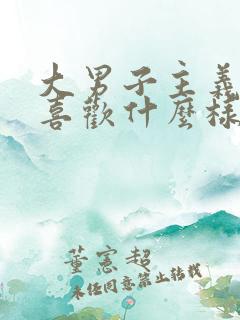 大男子主義
喜歡什麼樣
董憲超
未經同意禁止轉載